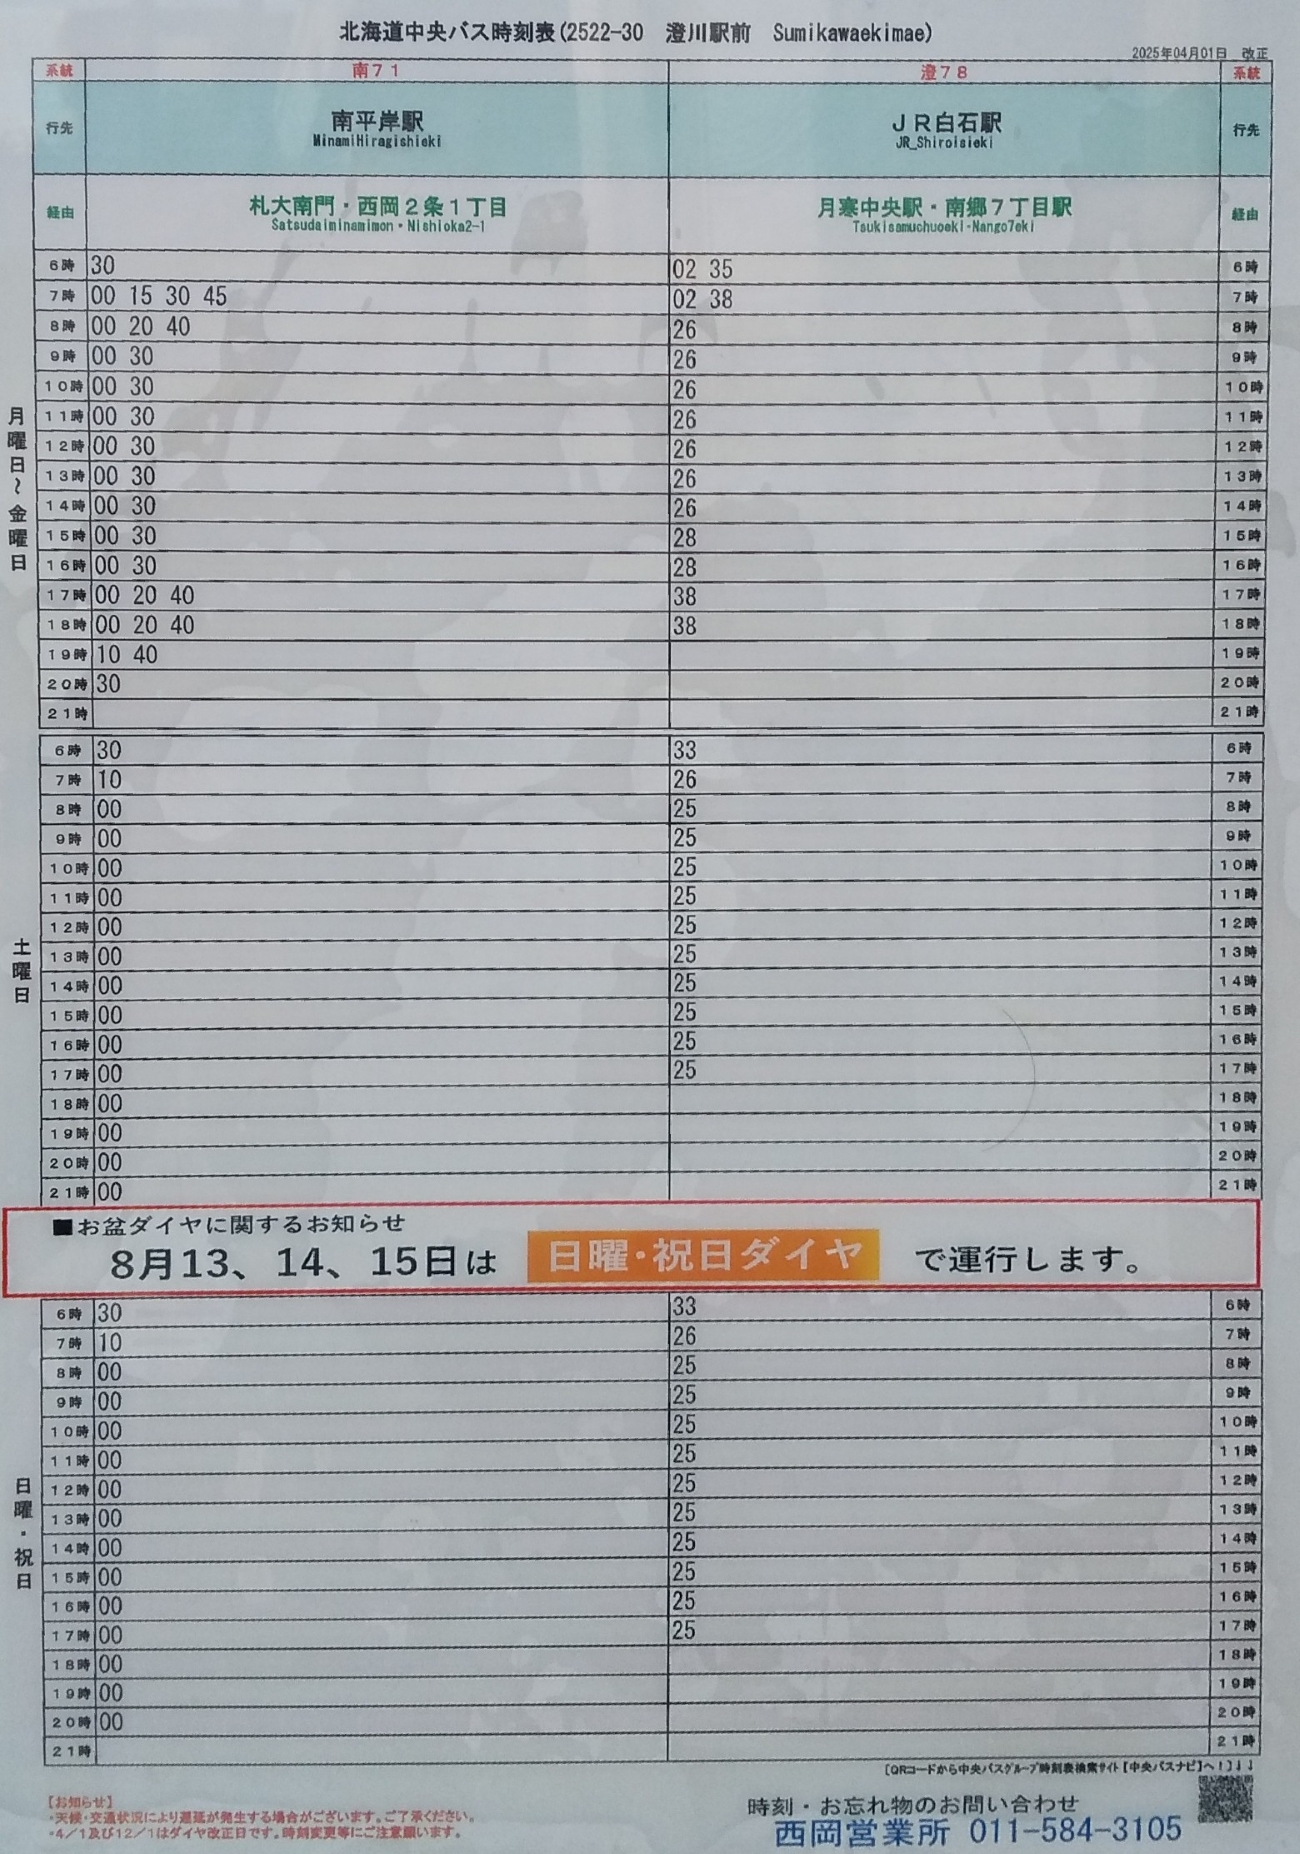 北海道中央バス時刻表(2522-30　澄川駅前　Sumikawaekimae)
2025年04月01日　改正
系統 南71 澄78 系統
行先 南平岸駅 JR白石駅 行先
MinamiHiragishieki JR_Shiroisieki
経由 札大南門・西岡2条1丁目 月寒中央駅・南郷7丁目駅 経由
Satsudaiminamimon・Nishioka2-1 Tsukisamuchuoeki-Nango7eki
月曜日～金曜日
6時 30 02 35 6時
7時 00 15 30 45 02 38 7時
8時 00 20 40 26 8時
9時 00 30 26 9時
10時 00 30 26 10時
11時 00 30 26 11時
12時 00 30 26 12時
13時 00 30 26 13時
14時 00 30 26 14時
15時 00 30 28 15時
16時 00 30 28 16時
17時 00 20 40 38 17時
18時 00 20 40 38 18時
19時 10 40 19時
20時 30 20時
21時 21時
土曜日
6時 30 33 6時
7時 10 26 7時
8時 00 25 8時
9時 00 25 9時
10時 00 25 10時
11時 00 25 11時
12時 00 25 12時
13時 00 25 13時
14時 00 25 14時
15時 00 25 15時
16時 00 25 16時
17時 00 25 17時
18時 00 18時
19時 00 19時
20時 00 20時
21時 00 21時
■お盆ダイヤに関するお知らせ
8月13、14、15日は 日曜・祝日ダイヤ で運行します。
日曜・祝日
6時 30 33 6時
7時 10 26 7時
8時 00 25 8時
9時 00 25 9時
10時 00 25 10時
11時 00 25 11時
12時 00 25 12時
13時 00 25 13時
14時 00 25 14時
15時 00 25 15時
16時 00 25 16時
17時 00 25 17時
18時 00 18時
19時 00 19時
20時 00 20時
21時 21時
[QRコードから中央バスグループ時刻表検索サイト【中央バスナビ】へ！]↓↓
【お知らせ】
・天候・交通状況により遅延が発生する場合がございます。ご了承ください。
・4/1及び12/1はダイヤ改正日です。時刻変更等にご注意願います。
時刻・お忘れ物のお問い合わせ
西岡営業所 011-584-3105